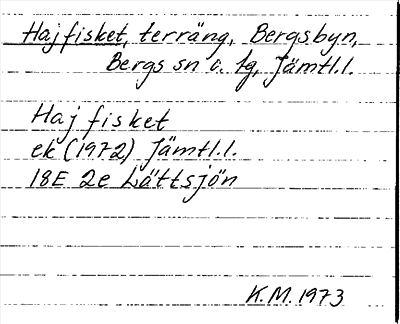 Hajfisket, terräng, Bergsbyn,
Bergs sn o. tg, Jämtl.l.
Hajfisket
ek (1972) Jämtl.l.
18E 2e Lättsjön
K.M. 1973